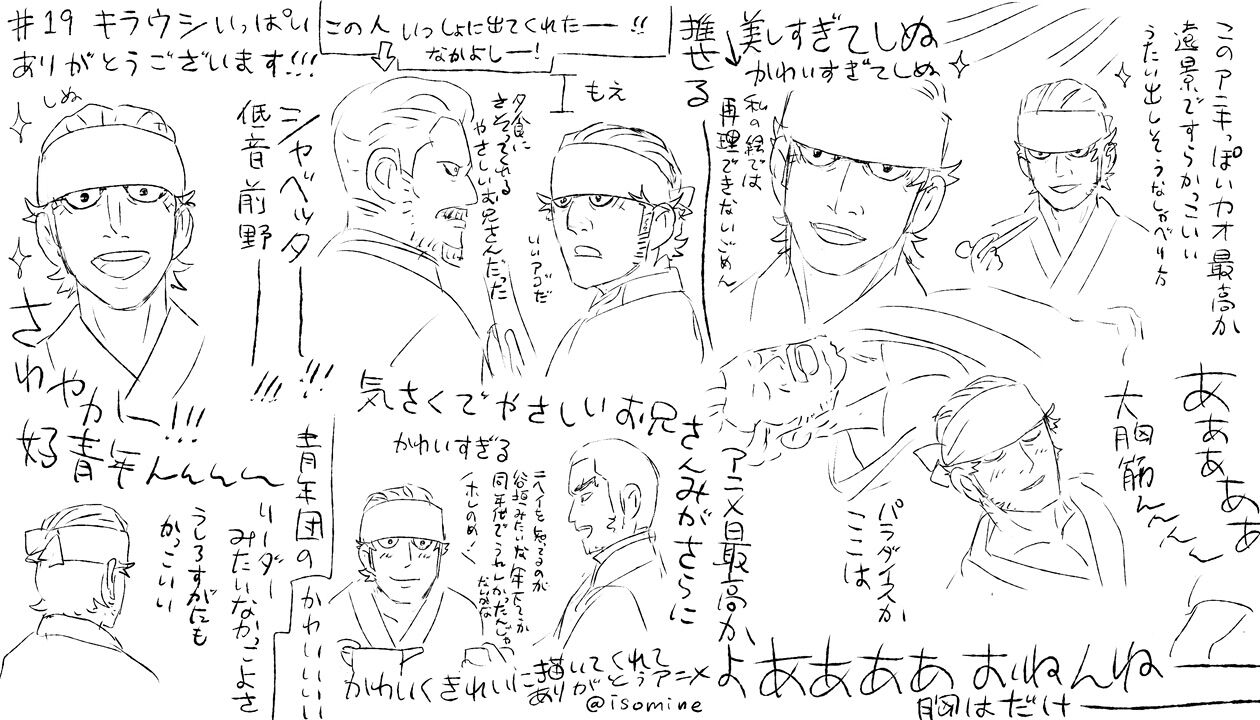 #19 キラウシいっぱい
ありがとうございます!!!
しぬ
さわやかー!!!
好青年んんんん
低音前野
シャベッター!!!
この人いっしょに出てくれたー!!
なかよしー!
夕食に
さそってやる
やさしいお兄さんだった
もえ
いいアゴだ
推せる
美しすぎてしぬ
かわいすぎてしぬ
私の絵では
再現できないごめん
このアニキっぽいカオ最高か
遠景ですらかっこいい
うたい出しそうなしゃべり方
気さくでやさしいお兄さんみがさらに
かわいすぎる
うしろすがたにも
かっこいい
リーダー
みたいなかっこよさ
青年団のかわいいいい
同年代でうれしかったんじゃ
だんかな
かわいくきれいに描いてくれて
ありがとうアニメ
@isomine
アニメ最高か
よああああ
おねんね
ああああ
大胸筋んんんん
パラダイスか
ここは
胸はだけ